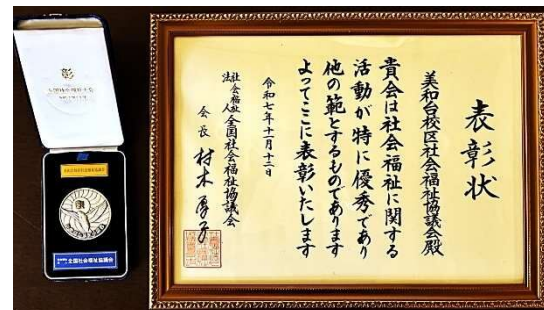 表彰状
美和台校区社会福祉協議会殿
貴会は社会福祉に関する
活動が特に優秀であり
他の範とするものであります
よってここに表彰いたします
令和七年十一月十二日
社会福祉法人 全国社会福祉協議会
会長 村木厚子
彰
全国社会福祉協議会